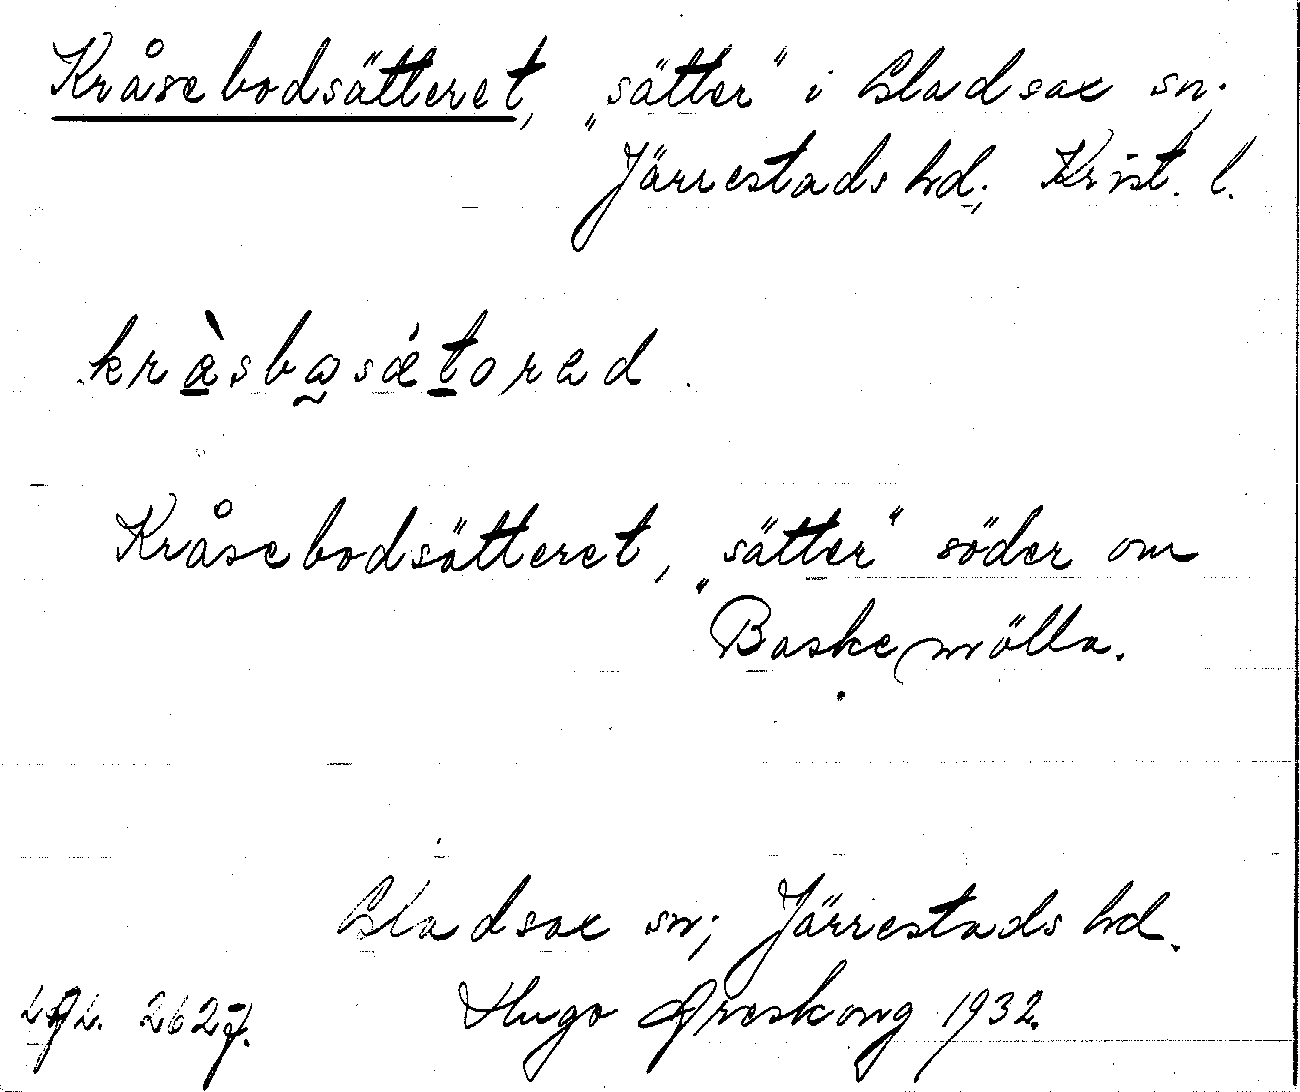 Kråsebodsätteret, „sätter” i Gladsax sn;
Järrestads hd; Krist. l.
Kråsebodsätteret, „sätter” söder om
Baskemölla.
Gladsax sn; Järrestads hd.
2627.
Hugo Areskoug 1932.